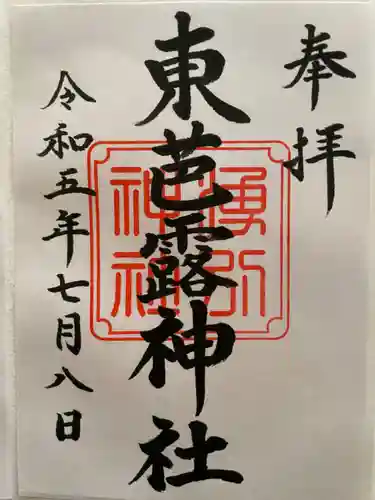 奉拝
東芭露神社
湧別神社
令和五年七月八日